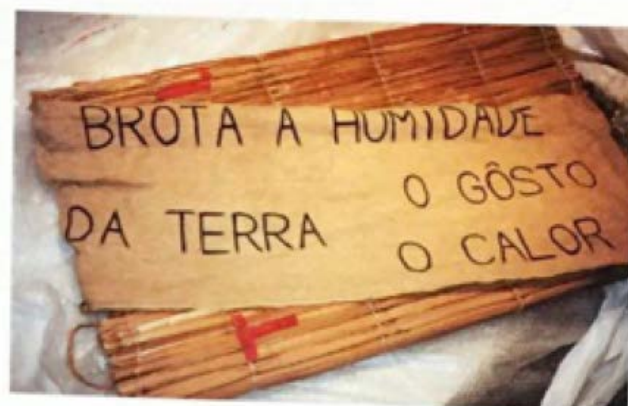 BROTA A HUMIDADE
DA TERRA
O GÔSTO
O CALOR